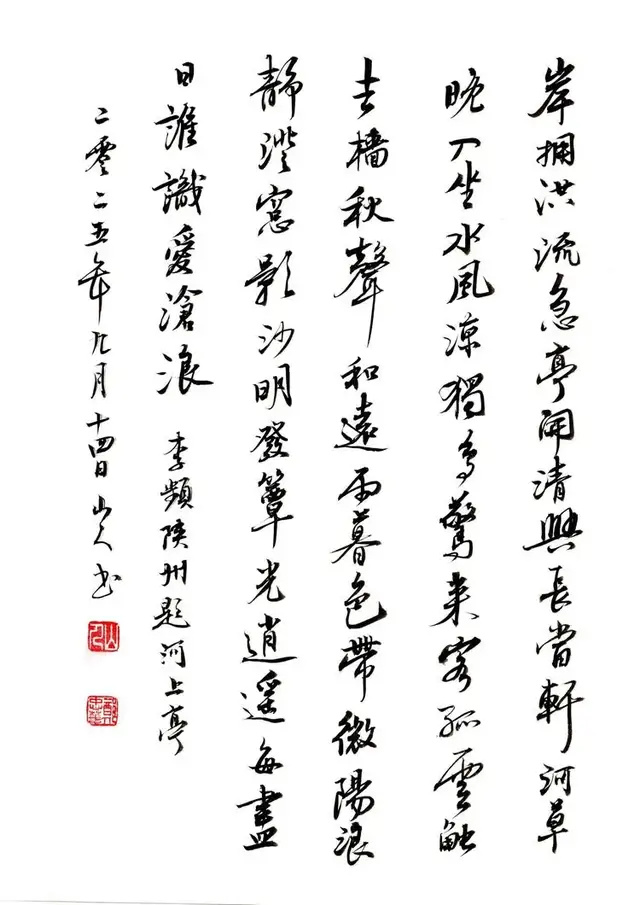 岸拥洪流急亭開清興長當軒河草
晚入坐水風凉獨鳥驚来客孤雲觸
去檣秋聲和遠雨暮色帶微陽浪
静澄窓影沙明發簟光逍遥每盡
日誰識愛滄浪 李頻陝州題河上亭
二零二五年九月十四日山人书
山人